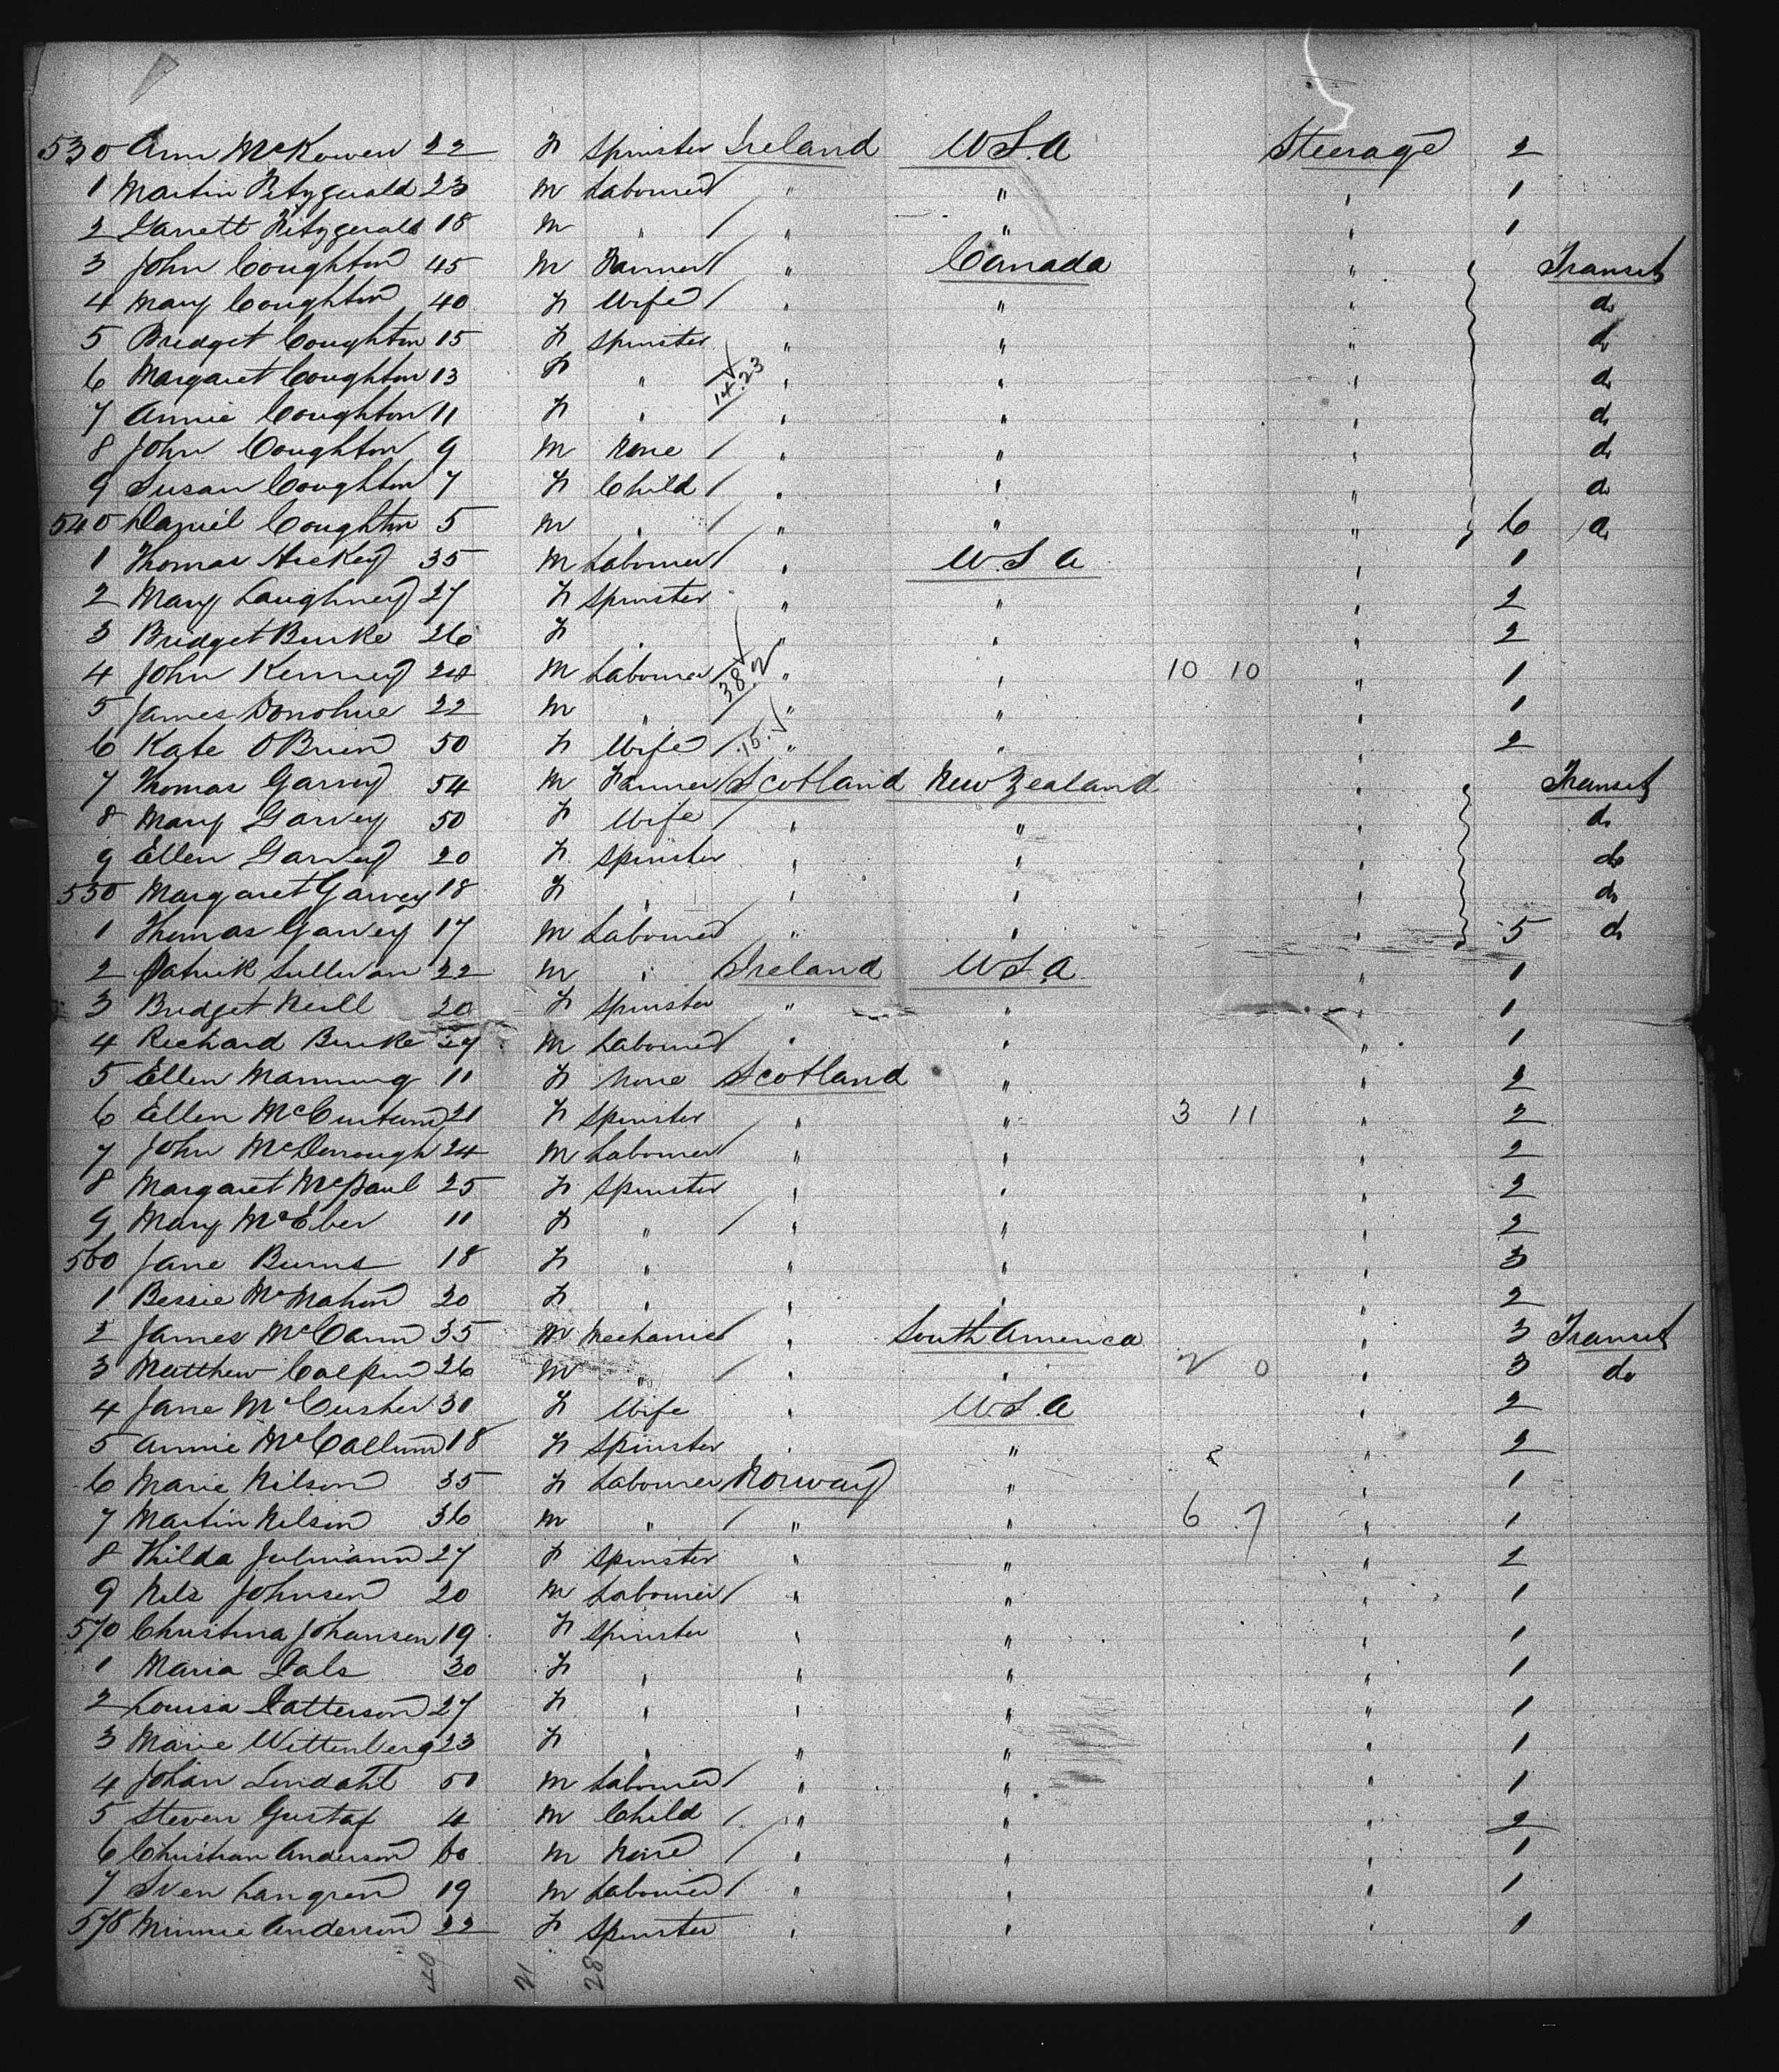 530 Ann McKowen 22 F Spinster Ireland U.S.A Steerage 2
1 Martin Fitzgerald 23 M Labourer " " " 1
2 Garrett Fitzgerald 18 M " " " " 1
3 John Coughton 45 M Farmer " Canada " Transit
4 Mary Coughton 40 F Wife " " " do
5 Bridget Coughton 15 F Spinster " " " do
6 Margaret Coughton 13 F " 14.23 " " " do
7 Annie Coughton 11 F " " " " do
8 John Coughton 9 M None " " " do
9 Susan Coughton 7 F Child " " " do
540 Daniel Coughton 5 M " " " " 6 do
1 Thomas Hickey 35 M Labourer " U.S.A " 1
2 Mary Laughney 27 F Spinster " " " 2
3 Bridget Burke 26 F " " " " 2
4 John Kenney 24 M Labourer 38.2 " " 10 10 " 1
5 James Donohue 22 M " " " " 1
6 Kate OBrien 50 F Wife 15 " " 2
7 Thomas Garvey 54 M Farmer Scotland New Zealand " Transit
8 Mary Garvey 50 F Wife " " " do
9 Ellen Garvey 20 F Spinster " " " do
550 Margaret Garvey 18 F " " " " do
1 Thomas Garvey 17 M Labourer " " " 5 do
2 Patrick Sullivan 22 M " Ireland U.S.A " 1
3 Bridget Neill 20 F Spinster " " " 1
4 Richard Burke 27 M Labourer " " " 1
5 Ellen Manning 11 F None Scotland " " 2
6 Ellen 21 F Spinster " " 3 11 " 2
7 John McDonough 24 M Labourer " " " 2
8 Margaret McPaul 25 F Spinster " " " 2
9 Mary McEber 11 F " " " " 2
560 Jane Burns 18 F " " " " 3
1 Bessie McMahon 20 F " " " " 2
2 James McCann 35 M Mechanic " South America " 3 Transit
3 Matthew 26 M " " " 2 0 " 3 do
4 Jane McCusker 30 F Wife " U.S.A " 2
5 Annie McCallum 18 F Spinster " " " 2
6 Marie Nilson 35 F Labourer Norway " " 1
7 Martin Nilson 36 M " " " 6 7 " 1
8 Hilda 27 F Spinster " " " 2
9 Nils Johnsen 20 M Labourer " " " 1
570 Christina Johansen 19 F Spinster " " " 1
1 Maria Dals 30 F " " " " 1
2 Louisa Patterson 27 F " " " " 1
3 Marie Wittenberg 23 F " " " " 1
4 Johan Lindahl 50 M Labourer " " " 1
5 Steven Gustaf 4 M Child " " " 2
6 Christian Anderson 60 M None " " " 1
7 Sven Langren 19 M Labourer " " " 1
578 Minnie Anderson 22 F Spinster " " " 1
49 21 28